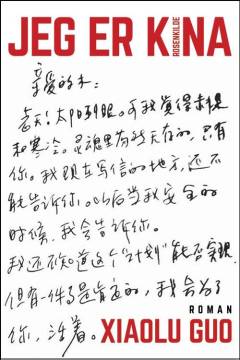 JEG ER KINA
ROSENKILDE
亲爱的木:
老天!太阳刺眼。可我觉得
和寒冷。灵魂里苟且存在的,只有
你。我现在写信的地方,还不
能告诉你。以后当我安全的
时候,我会告诉你。
我还不知道这个“计划”能否实现。
但有一件事是肯定的,我会为了
你,活着。
ROMAN
XIAOLU GUO